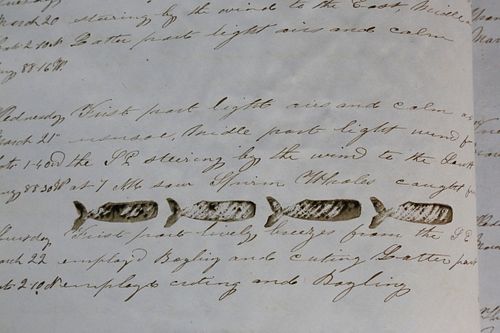 March 20 steering by the wind to the East, Middle
Latter part light airs and calm
88.16 W.
Wednesday First part light airs and calm as
March 21st usual, Midle part light wind f
1.40 N the SE steering by the wind to the
88.30 W at 7 AM saw Sperm Whales caught f
Thursday First part lively breezes from the SE
March 22 employd Boyling and cuting Latter part
2.10 N employd cuting and Boyling